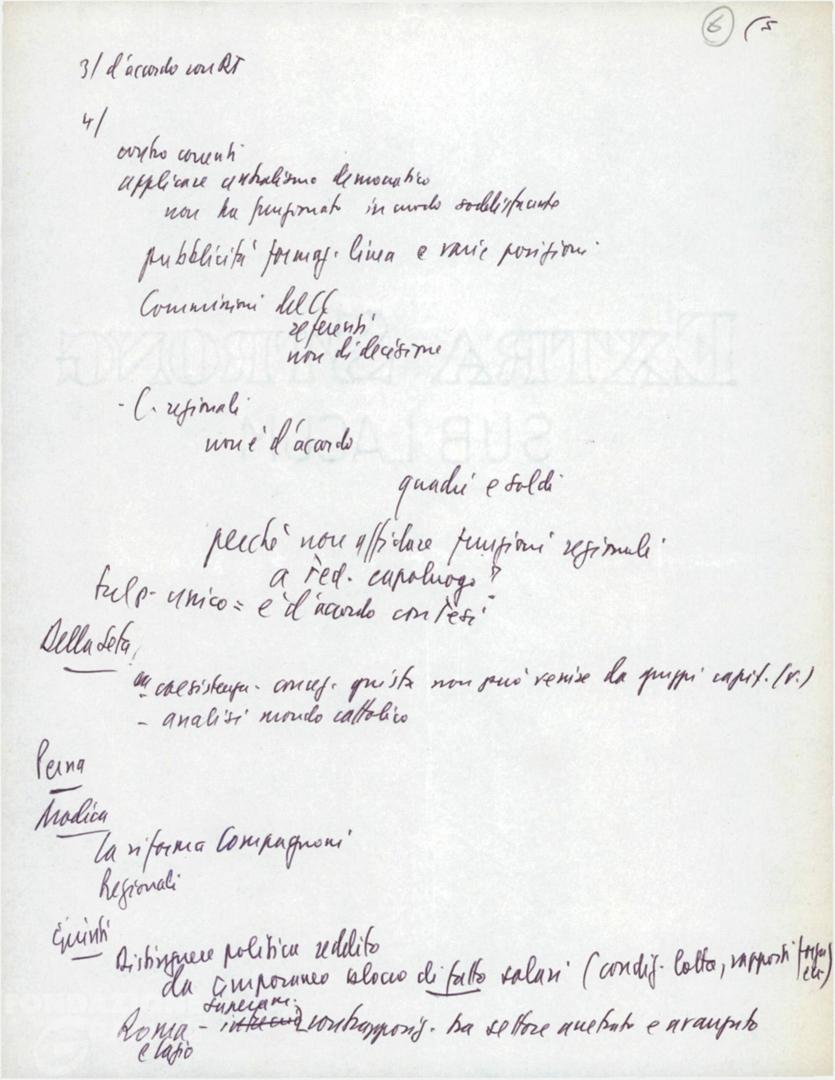 6 (5
3/ d'accordo con RT
4/
contro correnti
applicare centralismo democratico
non ha funzionato in modo soddisfacente
pubblicità formaz. linea e varie posizioni
Commissioni del CC
referenti
non di decisione
- C. regionali
non è d'accordo
quadri e soldi
perché non affidare funzioni regionali
a Fed. capoluogo?
unico = è d'accordo con Tesi
Della Seta
coesistenza - concez. giusta non può venire da gruppi capit. (v.)
- analisi mondo cattolico
Perna
Modica
la riforma Compagnoni
Regionali
Giunti
Distinguere politica reddito
da temporaneo blocco di fatto salari (condiz. lotta, rapporti forza, etc)
Roma - superam. contrapposiz. tra settore arretrato e avanzato
e Lazio
EXTRA STRONG
SUB LASON
FONDAZIONE